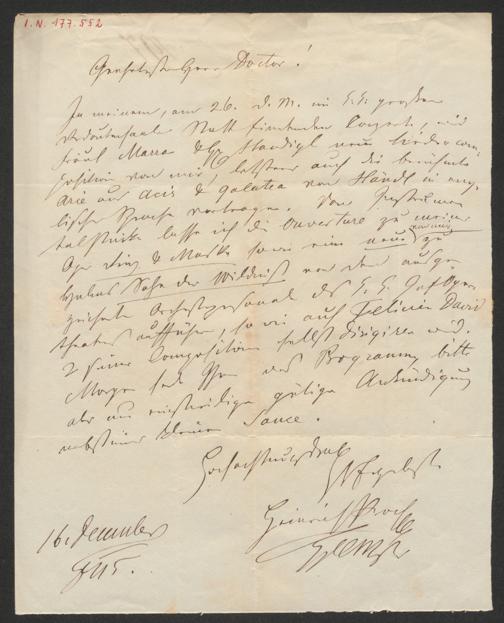 I.N. 177.552
Geehrtester Herr Doctor!
In meinem, am 26. d. M. im k.k. großen
Redoutensaal Statt findenden Conzerte, wird
Fräul Marra & H Staudigl neue Liedercom-
position von mir, letzterer auch die berühmte
Arie aus Acis & Galatea von Händl in eng-
lischer Sprache vortragen. Von
lasse ich die Ouverture zu meiner
Oper Ring & Maske sowie eine neue zu
Halms Sohn der Wildniß von dem ausge-
zeichneten Orchesterpersonal des k.k. Hofoper
theaters aufführen, so wie auch Felicien David
2 seiner Compositionen selbst dirigiren wird.
Morgen das Programm, bitte
aber um einstweilige gütige Ankündigung
nebst einer kleinen Sauce.
Hochachtungsvoll
Ihr Ergebenster
Heinrich Proch
16. December
845.